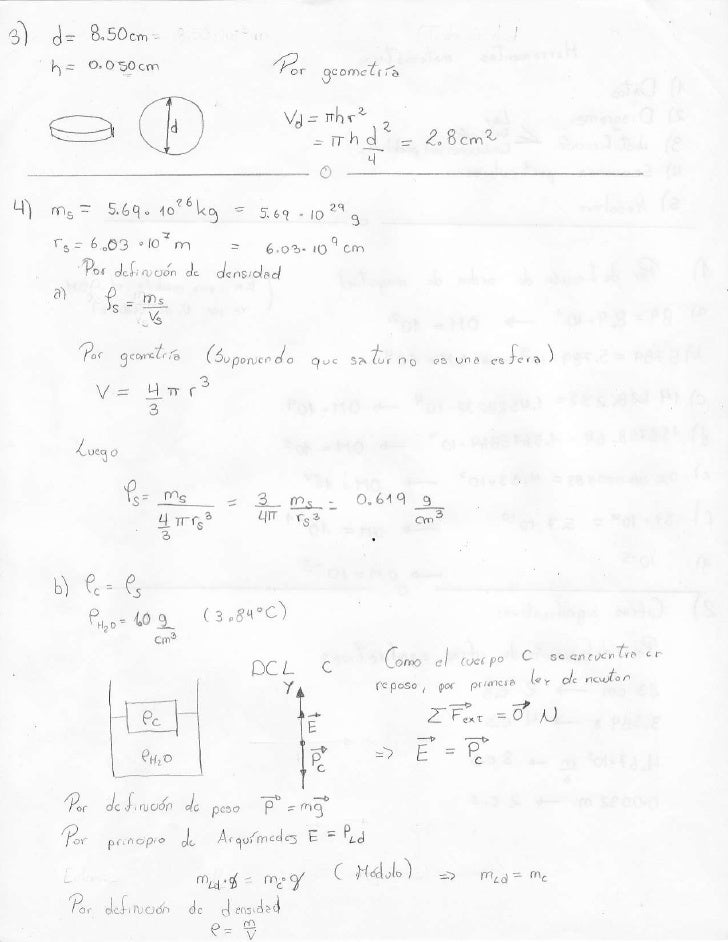 3) d = 8.50cm
h = 0.050cm
Por geometría
d
Vd = πhr²
= πh d²/4 = 2.8cm²
4) ms = 5.69 · 10²⁶ kg = 5.69 · 10²⁹ g
rs = 6.03 · 10⁷ m = 6.03 · 10⁹ cm
Por definición de densidad
a) ρs = ms/Vs
Por geometría (Suponiendo que saturno es una esfera)
V = 4/3 π r³
Luego
ρs = ms / (4/3 π rs³) = 3/4π ms/rs³ = 0.619 g/cm³
b) ρc = ρs
ρH₂O = 1.0 g/cm³ (3.84°C)
DCL C
Y
E
Pc
ρc
ρH₂O
Como el cuerpo C se encuentra en
reposo, por primera ley de newton
Σ Fext = 0 N
=> E = Pc
Por definición de peso P = mg
Por principio de Arquímedes E = PLd
mLd·g = mc·g (Módulo) => mLd = mc
Por definición de densidad
ρ = m/V